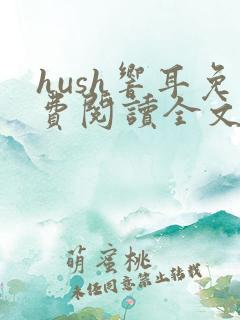 hush響耳免
費閱讀全文
萌蜜桃
未经同意禁止转载